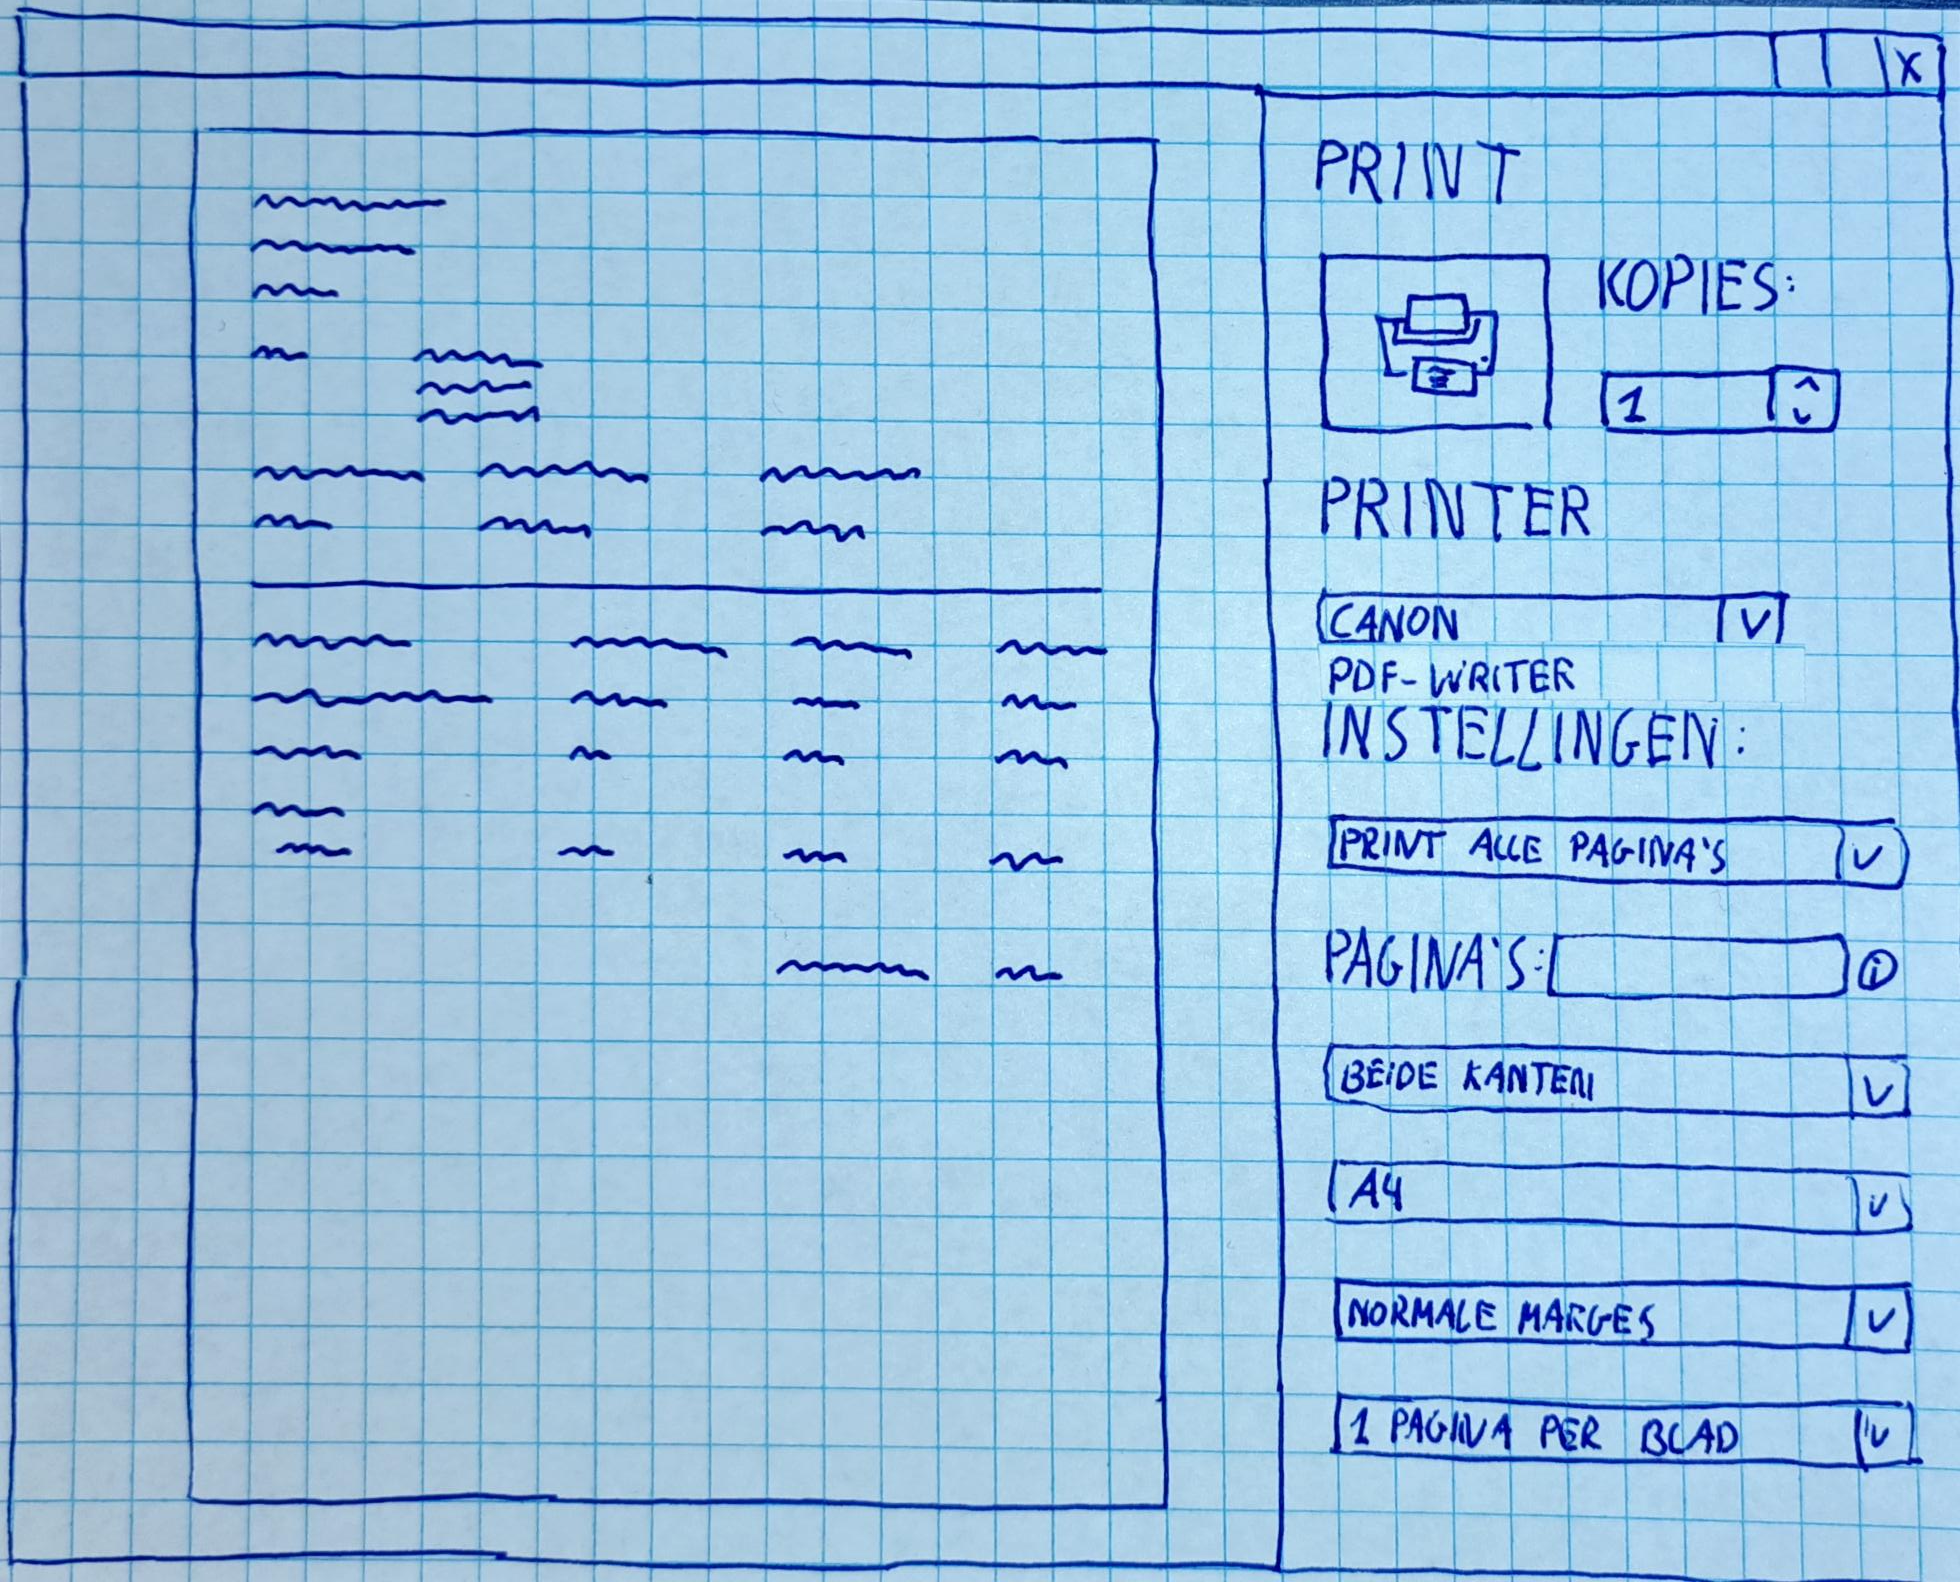 X
PRINT
KOPIES:
1
PRINTER
CANON
PDF-WRITER
INSTELLINGEN:
PRINT ALLE PAGINA'S
PAGINA'S:
i
BEIDE KANTEN
A4
NORMALE MARGES
1 PAGINA PER BLAD